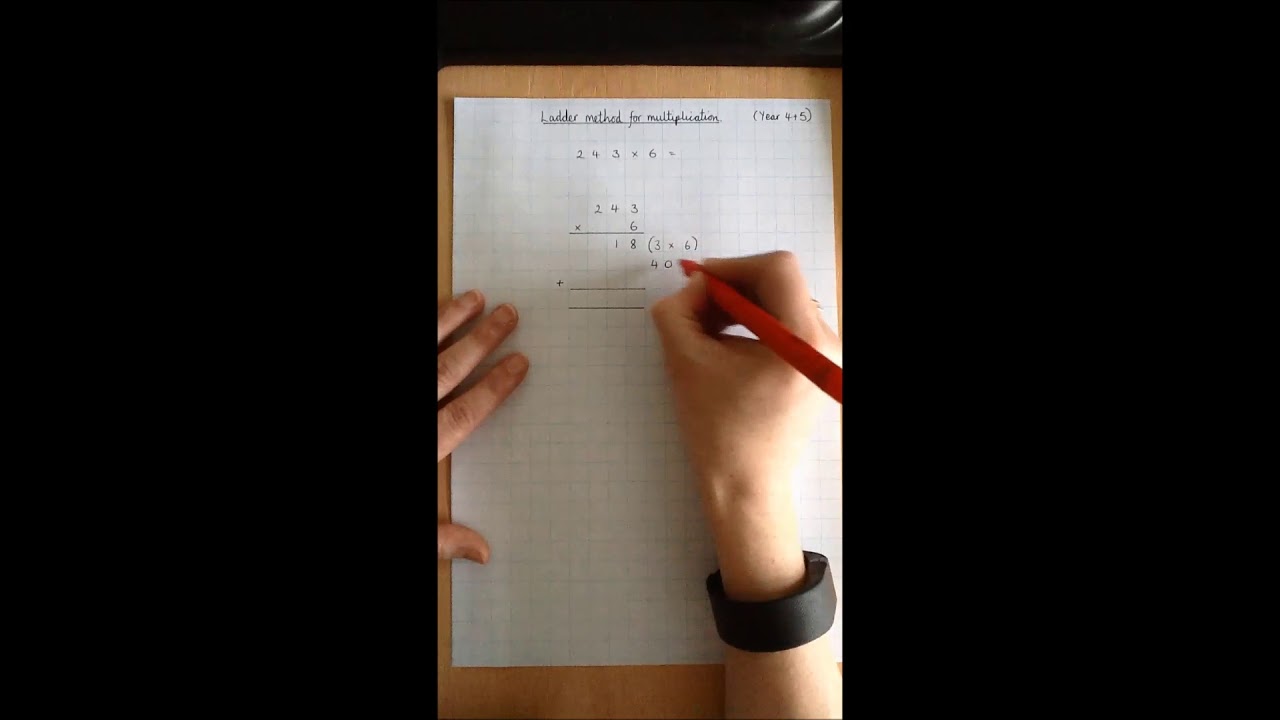 Ladder method for multiplication. (Year 4+5)
2 4 3 × 6 =
2 4 3
× 6
1 8 (3 × 6)
4 0
+